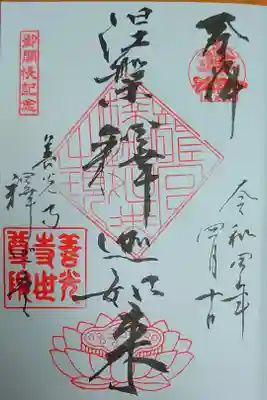 奉拝
令和四年
四月十日
涅槃釋迦如来
御開帳記念
善光寺
善光
寺世
尊院